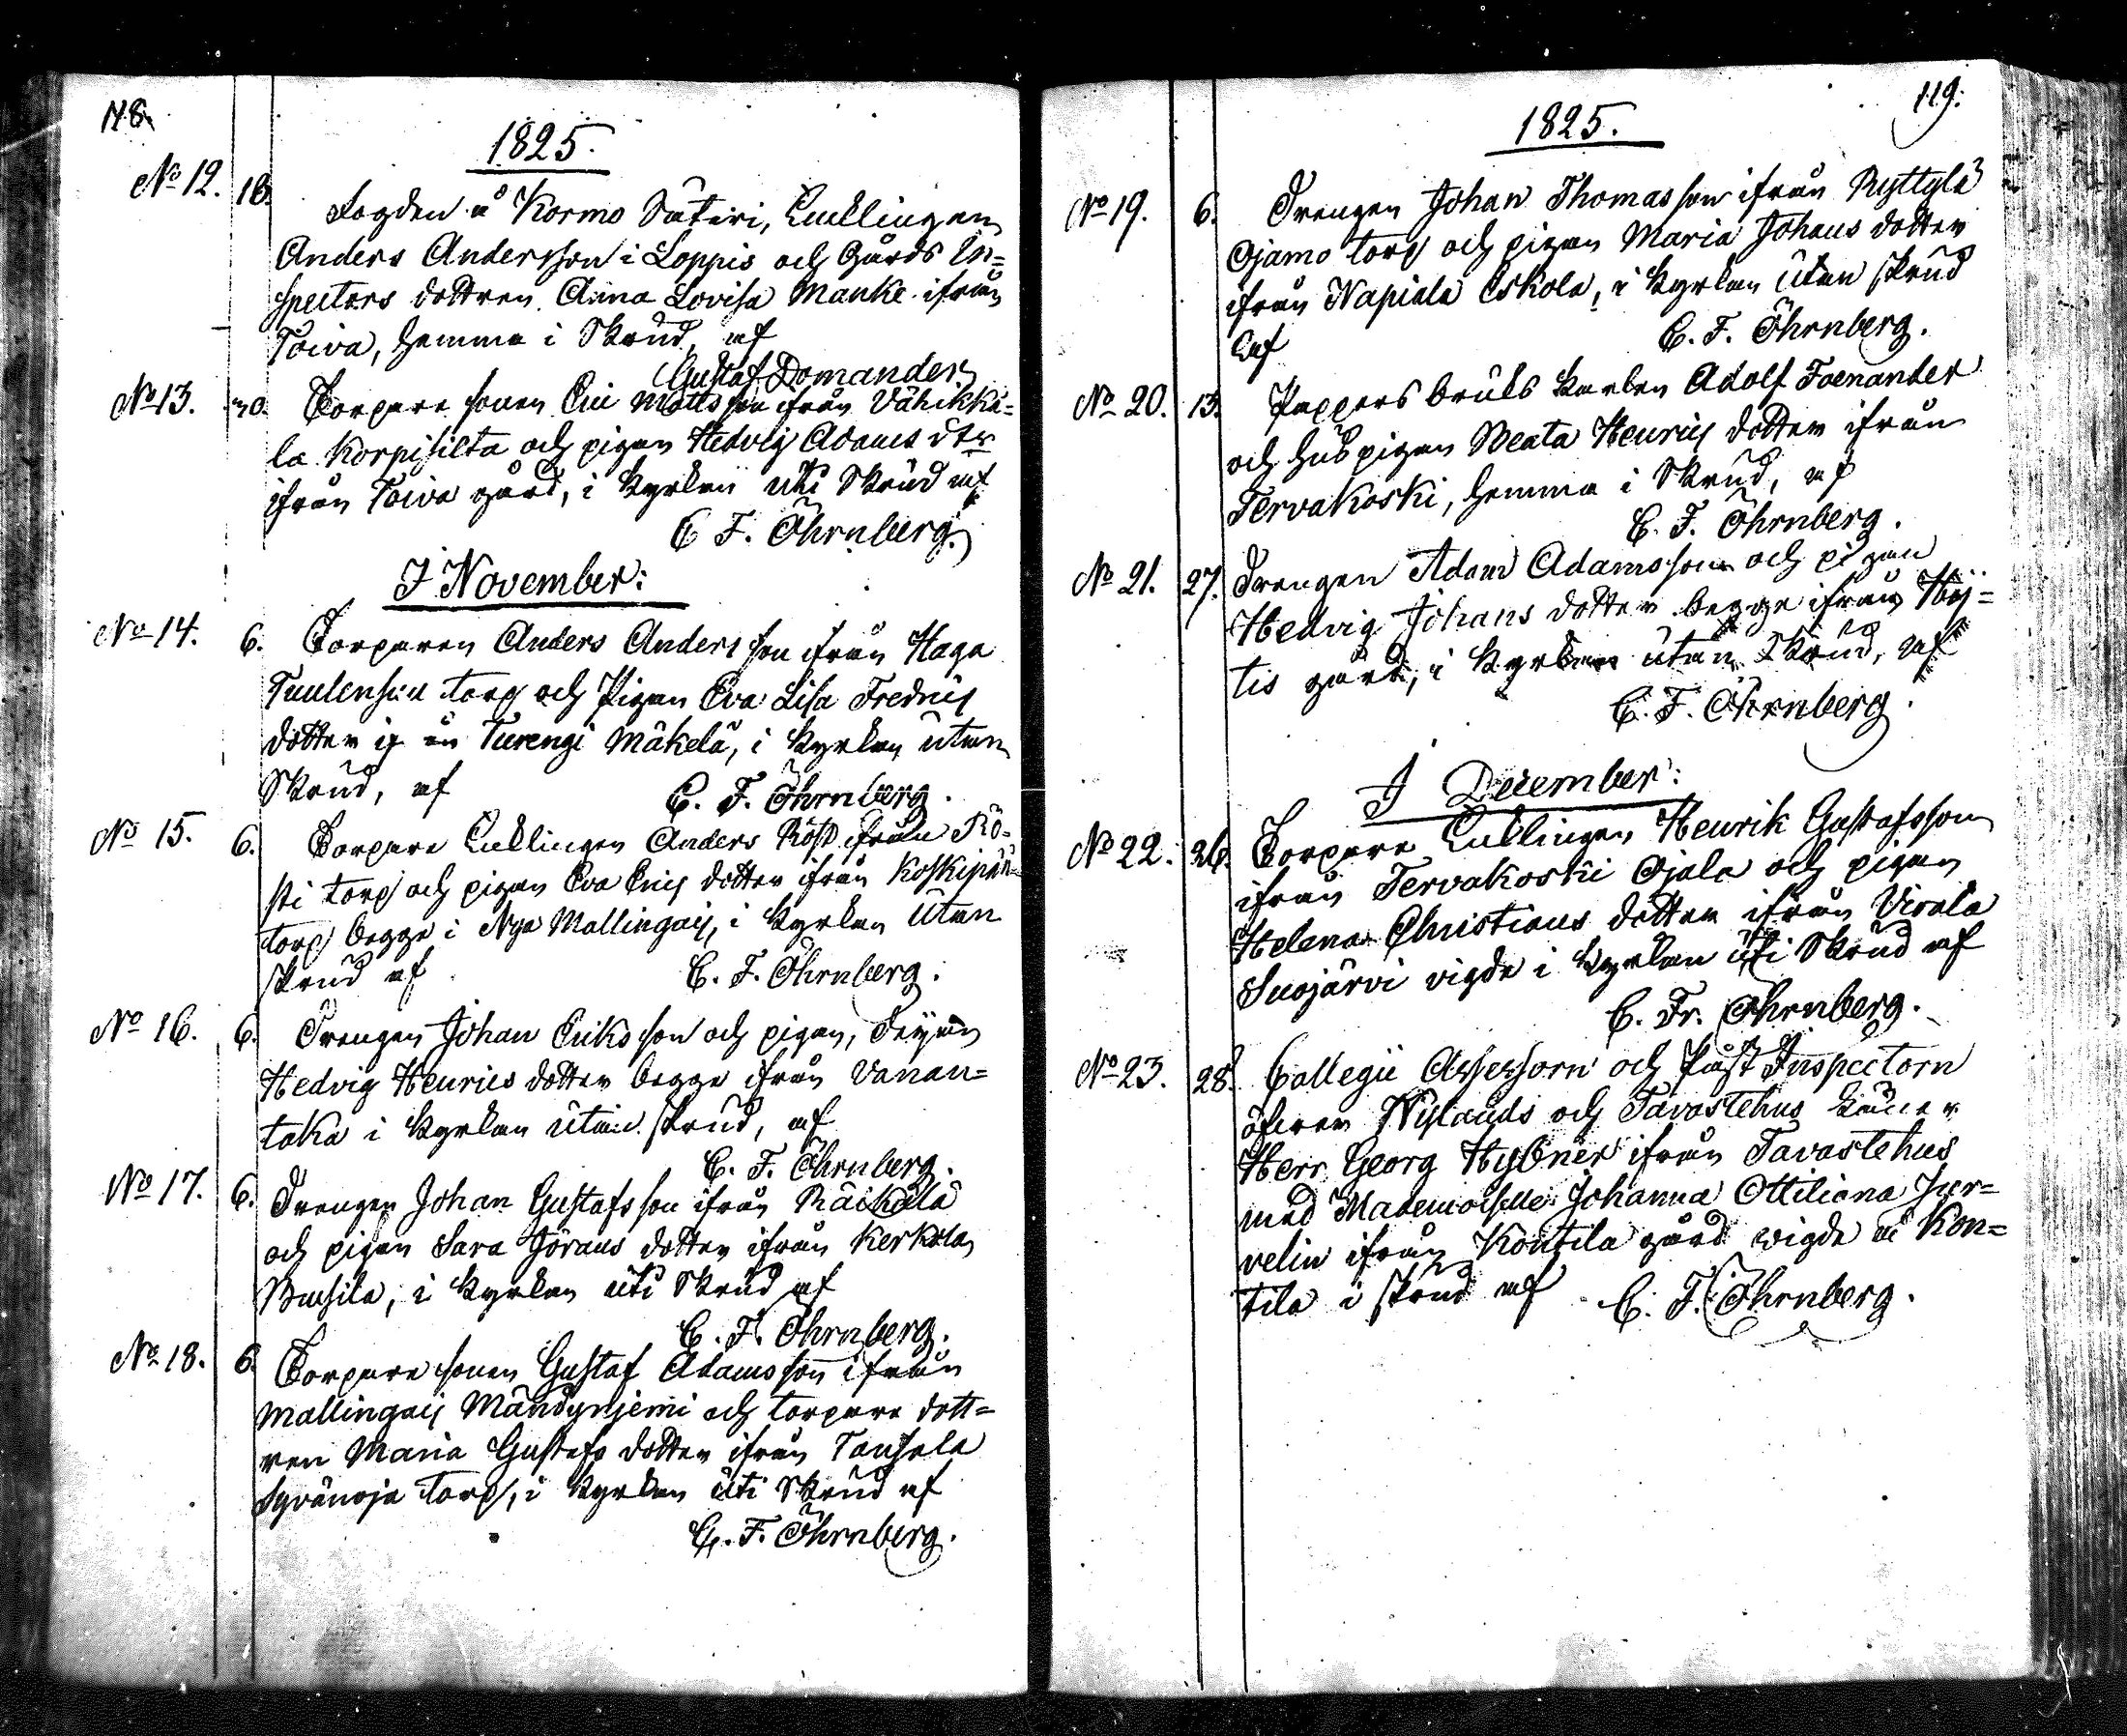 118.
1825.
No 12. 16. Fogden å Kormo Säteri, Enklingen
Anders Andersson i Loppis och Gårds In=
spectors dottren Anna Lovisa Manke ifrån
Toiva, hemma i Skrud, af
Gustaf Domander
No 13. 30. Torpare sonen Eric Matts son ifrån Vähikkä=
la Korpisilta och pigan Hedvig Adams dtr
ifrån Toiva gård, i Kyrkan uti Skrud af
C. F. Öhrnberg.
I November:
No 14. 6. Torparen Anders Anders son ifrån Haga
Tuulensuu torp och Pigan Eva Lisa Fredrics
dotter if ån Turengi Mäkelä, i Kyrkan, utan
Skrud, af C. F. Öhrnberg.
No 15. 6. Torpare Enklingen Anders Röst ifrån Rö=
sti torp och pigan Eva Erics dotter ifrån Koskipää
torp begge i Nya Mallingais, i Kyrkan utan
skrud af C. F. Öhrnberg.
No 16. 6. Drengen Johan Eriks son och pigan,
Hedvig Henrics dotter begge ifrån Vanan=
taka i Kyrkan utan skrud, af
C. F. Öhrnberg.
No 17. 6. Drengen Johan Gustafs son ifrån Räikälä
och pigan Sara Görans dotter ifrån Kerkola
i Kyrkan uti Skrud af
C. F. Öhrnberg.
No 18. 6. Torpare sonen Gustaf Adams son ifrån
Mallingais Mändynjemi och torpare dott=
ren Maria Gustafs dotter ifrån Tansala
Syvänoja torp, i Kyrkan uti Skrud af
C. F. Öhrnberg.
119.
1825.
No 19. 6. Drengen Johan Thomas son ifrån Ryttylä
Ojamo torp och pigan Maria Johans dotter
ifrån Napiala Eskola, i Kyrkan utan skrud
af C. F. Öhrnberg.
No 20. 13. Pappers bruks karlen Adolf Foenander
och hus pigan Beata Henrics dotter ifrån
Tervakoski, hemma i Skrud, af
C. F. Öhrnberg.
No 21. 27. Drengen Adam Adamsson och pigan
Hedvig Johans dotter begge ifrån Höj=
tis gård, i Kyrkan utan Skrud, af
C. F. Öhrnberg.
I December:
No 22. 26. Torpare Enklingen Henrik Gustafsson
ifrån Tervakoski Ojala och pigan
Helena Christians dotter ifrån Virala
Suojärvi vigde i Kyrkan uti Skrud af
C. Fr. Öhrnberg.
No 23. 28. Collegii Assessorn och Påst Inspectorn
öfver Nylands och Tavastehus Läner
Herr Georg Hybner ifrån Tavastehus
med Mademoiselle Johanna Ottiliana Jur=
velin ifrån Kontila gård vigde å Kon=
tila i skrud af C. F. Öhrnberg.